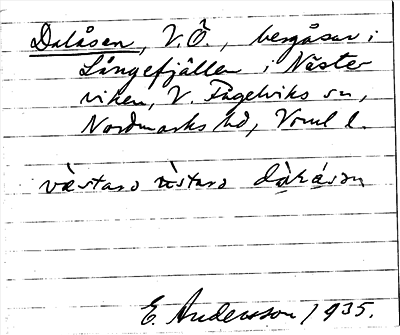 Dalåsen, V. Ö., bergåsar i
Långefjällen i Näster
viken, V. Fågelviks sn,
Nordmarks hd, Vrml l.
västarə östarə
E. Andersson 1935.